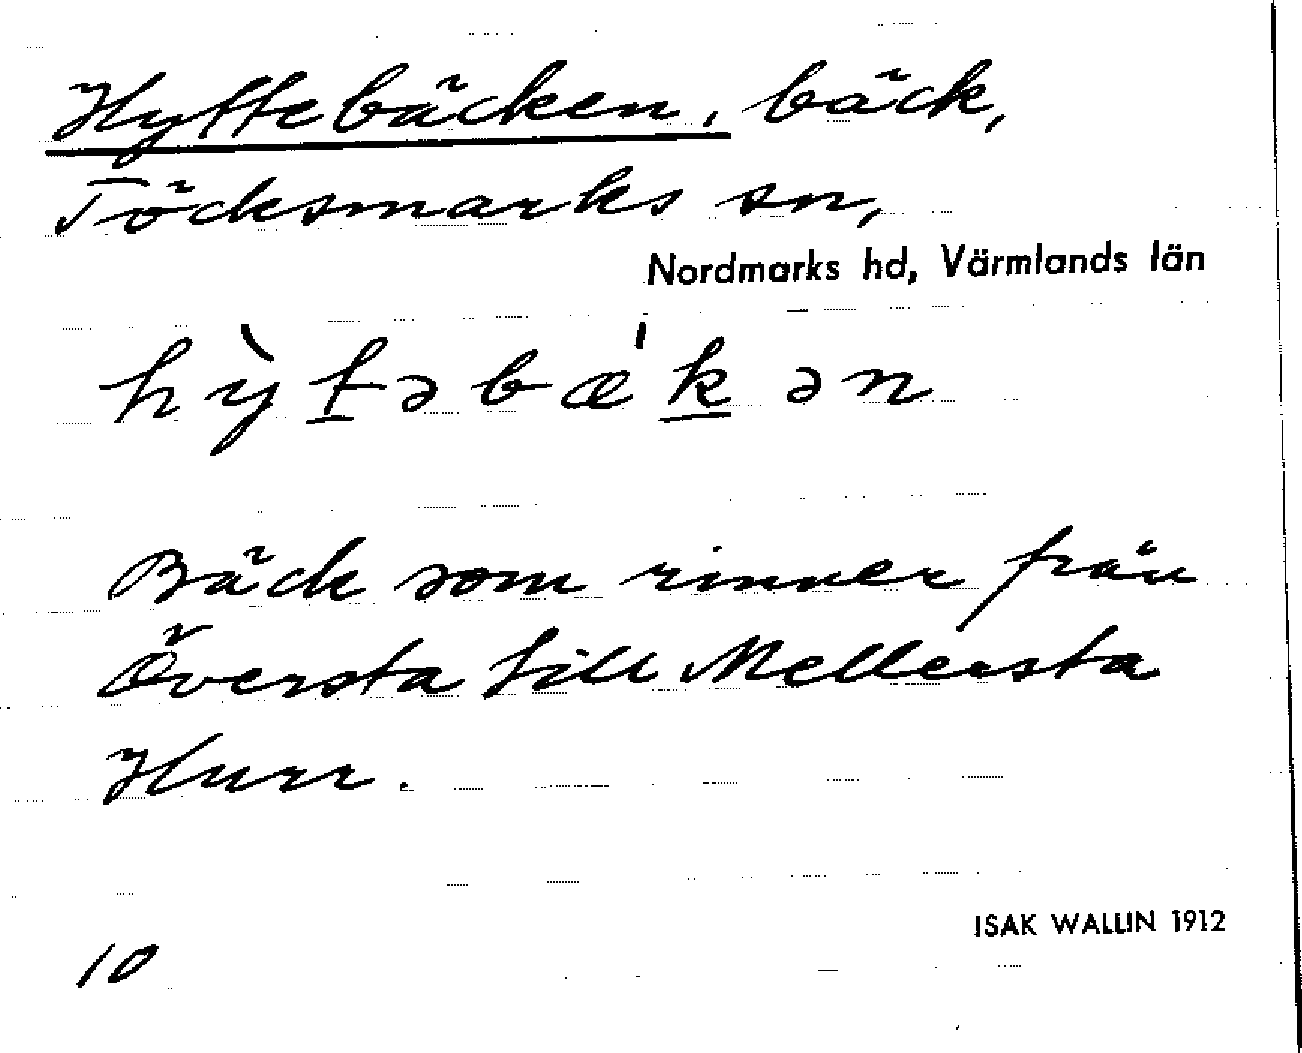 Hyttebäcken, bäck,
Töcksmarks sn,
Nordmarks hd, Värmlands län
hỳt̲əbǽk̲ən
Bäck som rinner från
Översta till Mellersta
Hurr.
ISAK WALLIN 1912
10